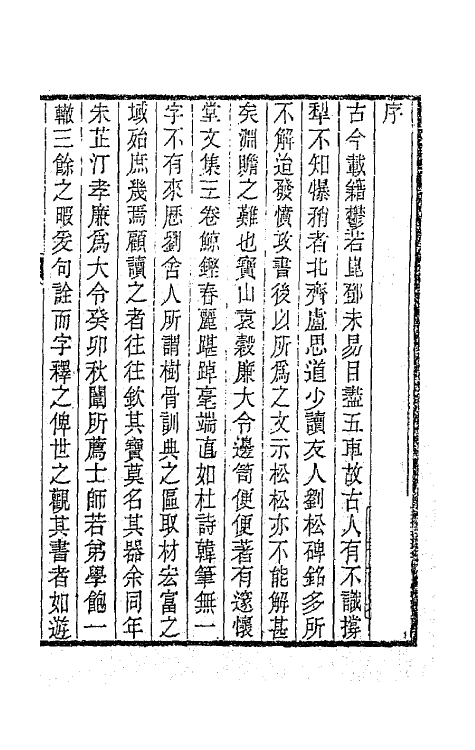 序
古今載籍鬱若崑鄧未易目盡五車故古人有不識撐
犁不知爆矟者北齊盧思道少讀友人劉松碑銘多所
不解迨發憤攻書後以所為之文示松松亦不能解甚
矣淵贍之難也寶山袁穀廉大令邊笥便便著有邃懷
堂文集三卷鯨鏗春麗踸踔毫端直如杜詩韓筆無一
字不有來歷劉舍人所謂樹骨訓典之區取材宏富之
域始庶幾焉顧讀之者往往欽其寶莫名其器余同年
朱芷汀孝廉為大令癸卯秋闈所薦士師若弟學飽一
轍三餘之暇爰句詮而字釋之俾世之觀其書者如遊